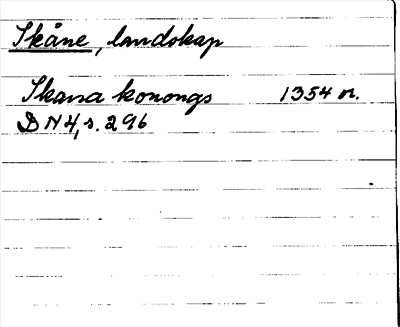 Skåne, landskap
Skana konongs 1354 or.
DN4, s. 296